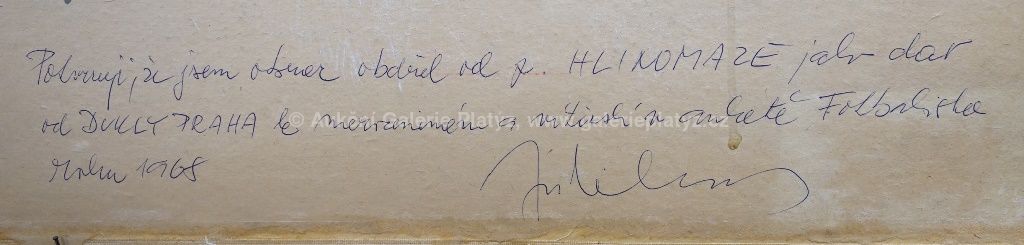 Potvrzuji, že jsem obraz obdržel od p. HLINOMAZE jako dar
od DUKLY PRAHA k narozeninám a vítězství v anketě Fotbalista
roku 1968
© Aukční Galerie Platýz, www.galerieplatyz.cz